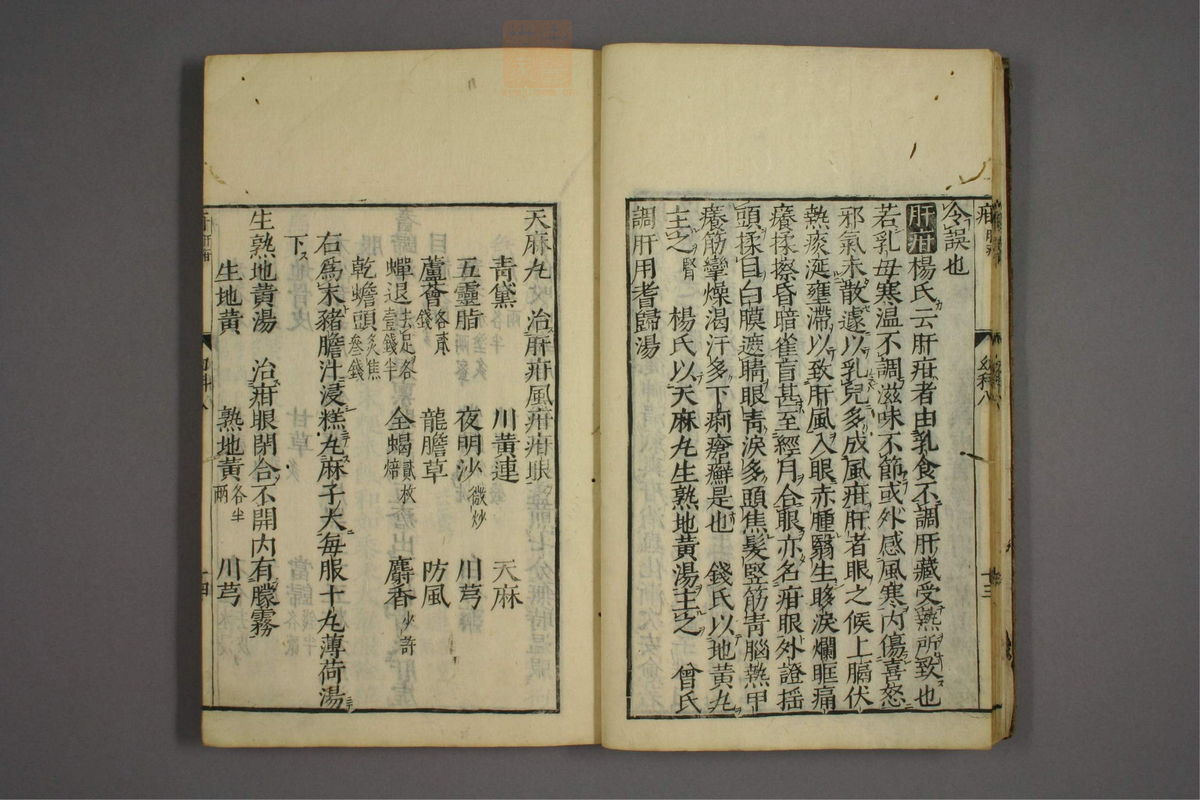 令誤也
肝疳楊氏云肝疳者由乳食不調肝藏受熱所致也
若乳母寒温不調滋味不節或外感風寒内傷喜怒
邪氣未散遽以乳兒多成風疳肝者眼之候上膈伏
熱痰涎壅滯以致肝風入眼赤腫翳生眵淚爛眶痛
癢揉擦昏暗雀盲甚至經月合眼亦名疳眼外證揺
頭揉目白膜遮睛眼靑淚多頭焦髮竪筋靑腦熱甲
癢筋攣燥渴汗多下痢瘡癬是也 錢氏以地黄丸
主之腎 楊氏以天麻丸生熟地黄湯主之 曾氏
調肝用耆歸湯
十三
天麻丸 治肝疳風疳疳眼
靑黛 川黄連 天麻
五靈脂 夜明沙微炒 川芎
蘆薈各貳錢 龍膽草 防風
蟬退去足各壹錢半 全蝎貳枚焙 麝香少許
乾蟾頭炙焦叁錢
右爲末豬膽汁浸糕丸麻子大每服十丸薄荷湯
下
生熟地黄湯 治疳眼閉合不開内有朦霧
生地黄 熟地黄各半兩 川芎
十四